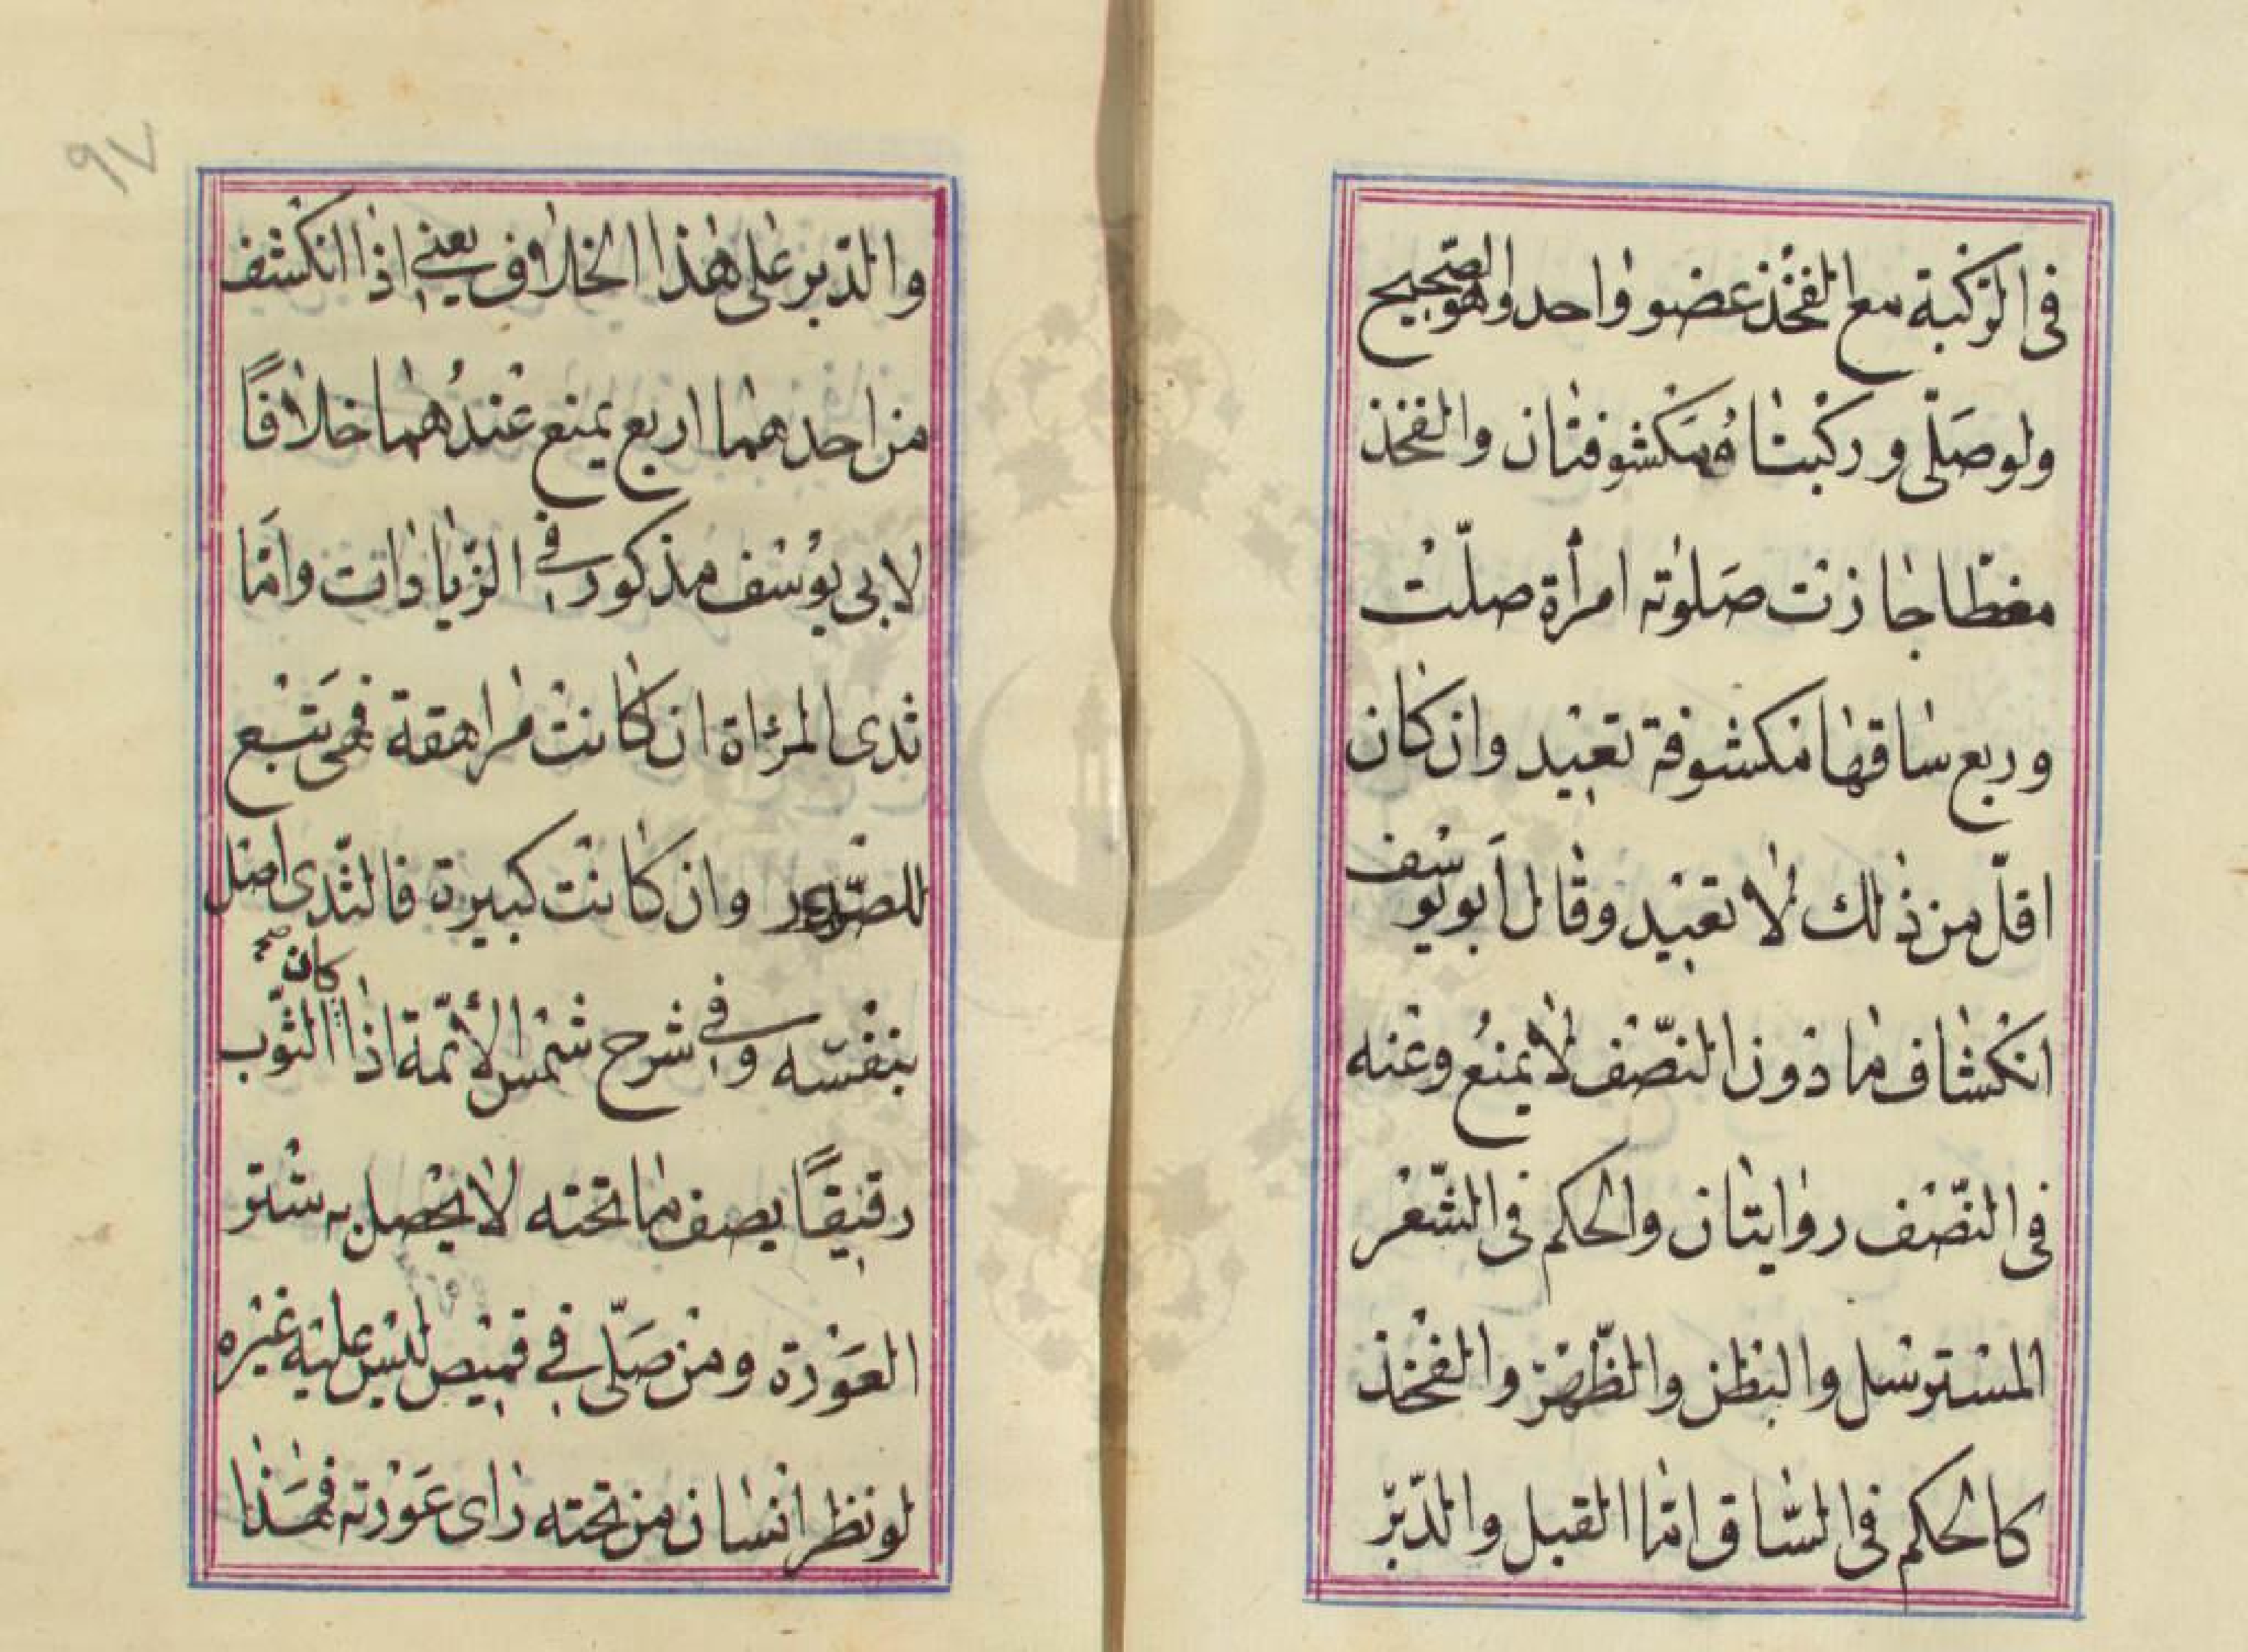 فى الركبة مع الفخذ عضو واحد وهو الصحيح
ولو صَلّى وركبتاهُ مكشوفتان والفخذ
مغطّا جازت صَلوته امرأة صلّت
وربع ساقها مكشوفة تعيد وان كان
اقلّ من ذلك لا تعيد وقال أبو يوسف
انكشاف ما دون النصّف لا يمنعُ وعنه
فى النصّف روايتان والحكم فى الشّعر
المسترسل والبطن والظّهر والفخذ
كالحكم فى السّاق امّا القبل والدّبر
٩٧
والدّبر على هذا الخلاف يعنى اذا انكشف
من احدهما اربع يمنع عندُهما خلافًا
لابى يوُسف مذكور فى الزّيادات وامّا
ثدى المرءاة ان كانت مراهقة فهى تَتبع
للصّدر وان كانت كبيرة فالثّدى اصل
كان صح
بنفسه وفى شرح شمس الأئمّة اذا الثّوب
رقيقًا يصف ما تحته لا يحصل به ستر
العَورة ومن صَلّى فى قميص ليس عليه غيره
لو نظر انسان من تحته راى عَورته فهَذا